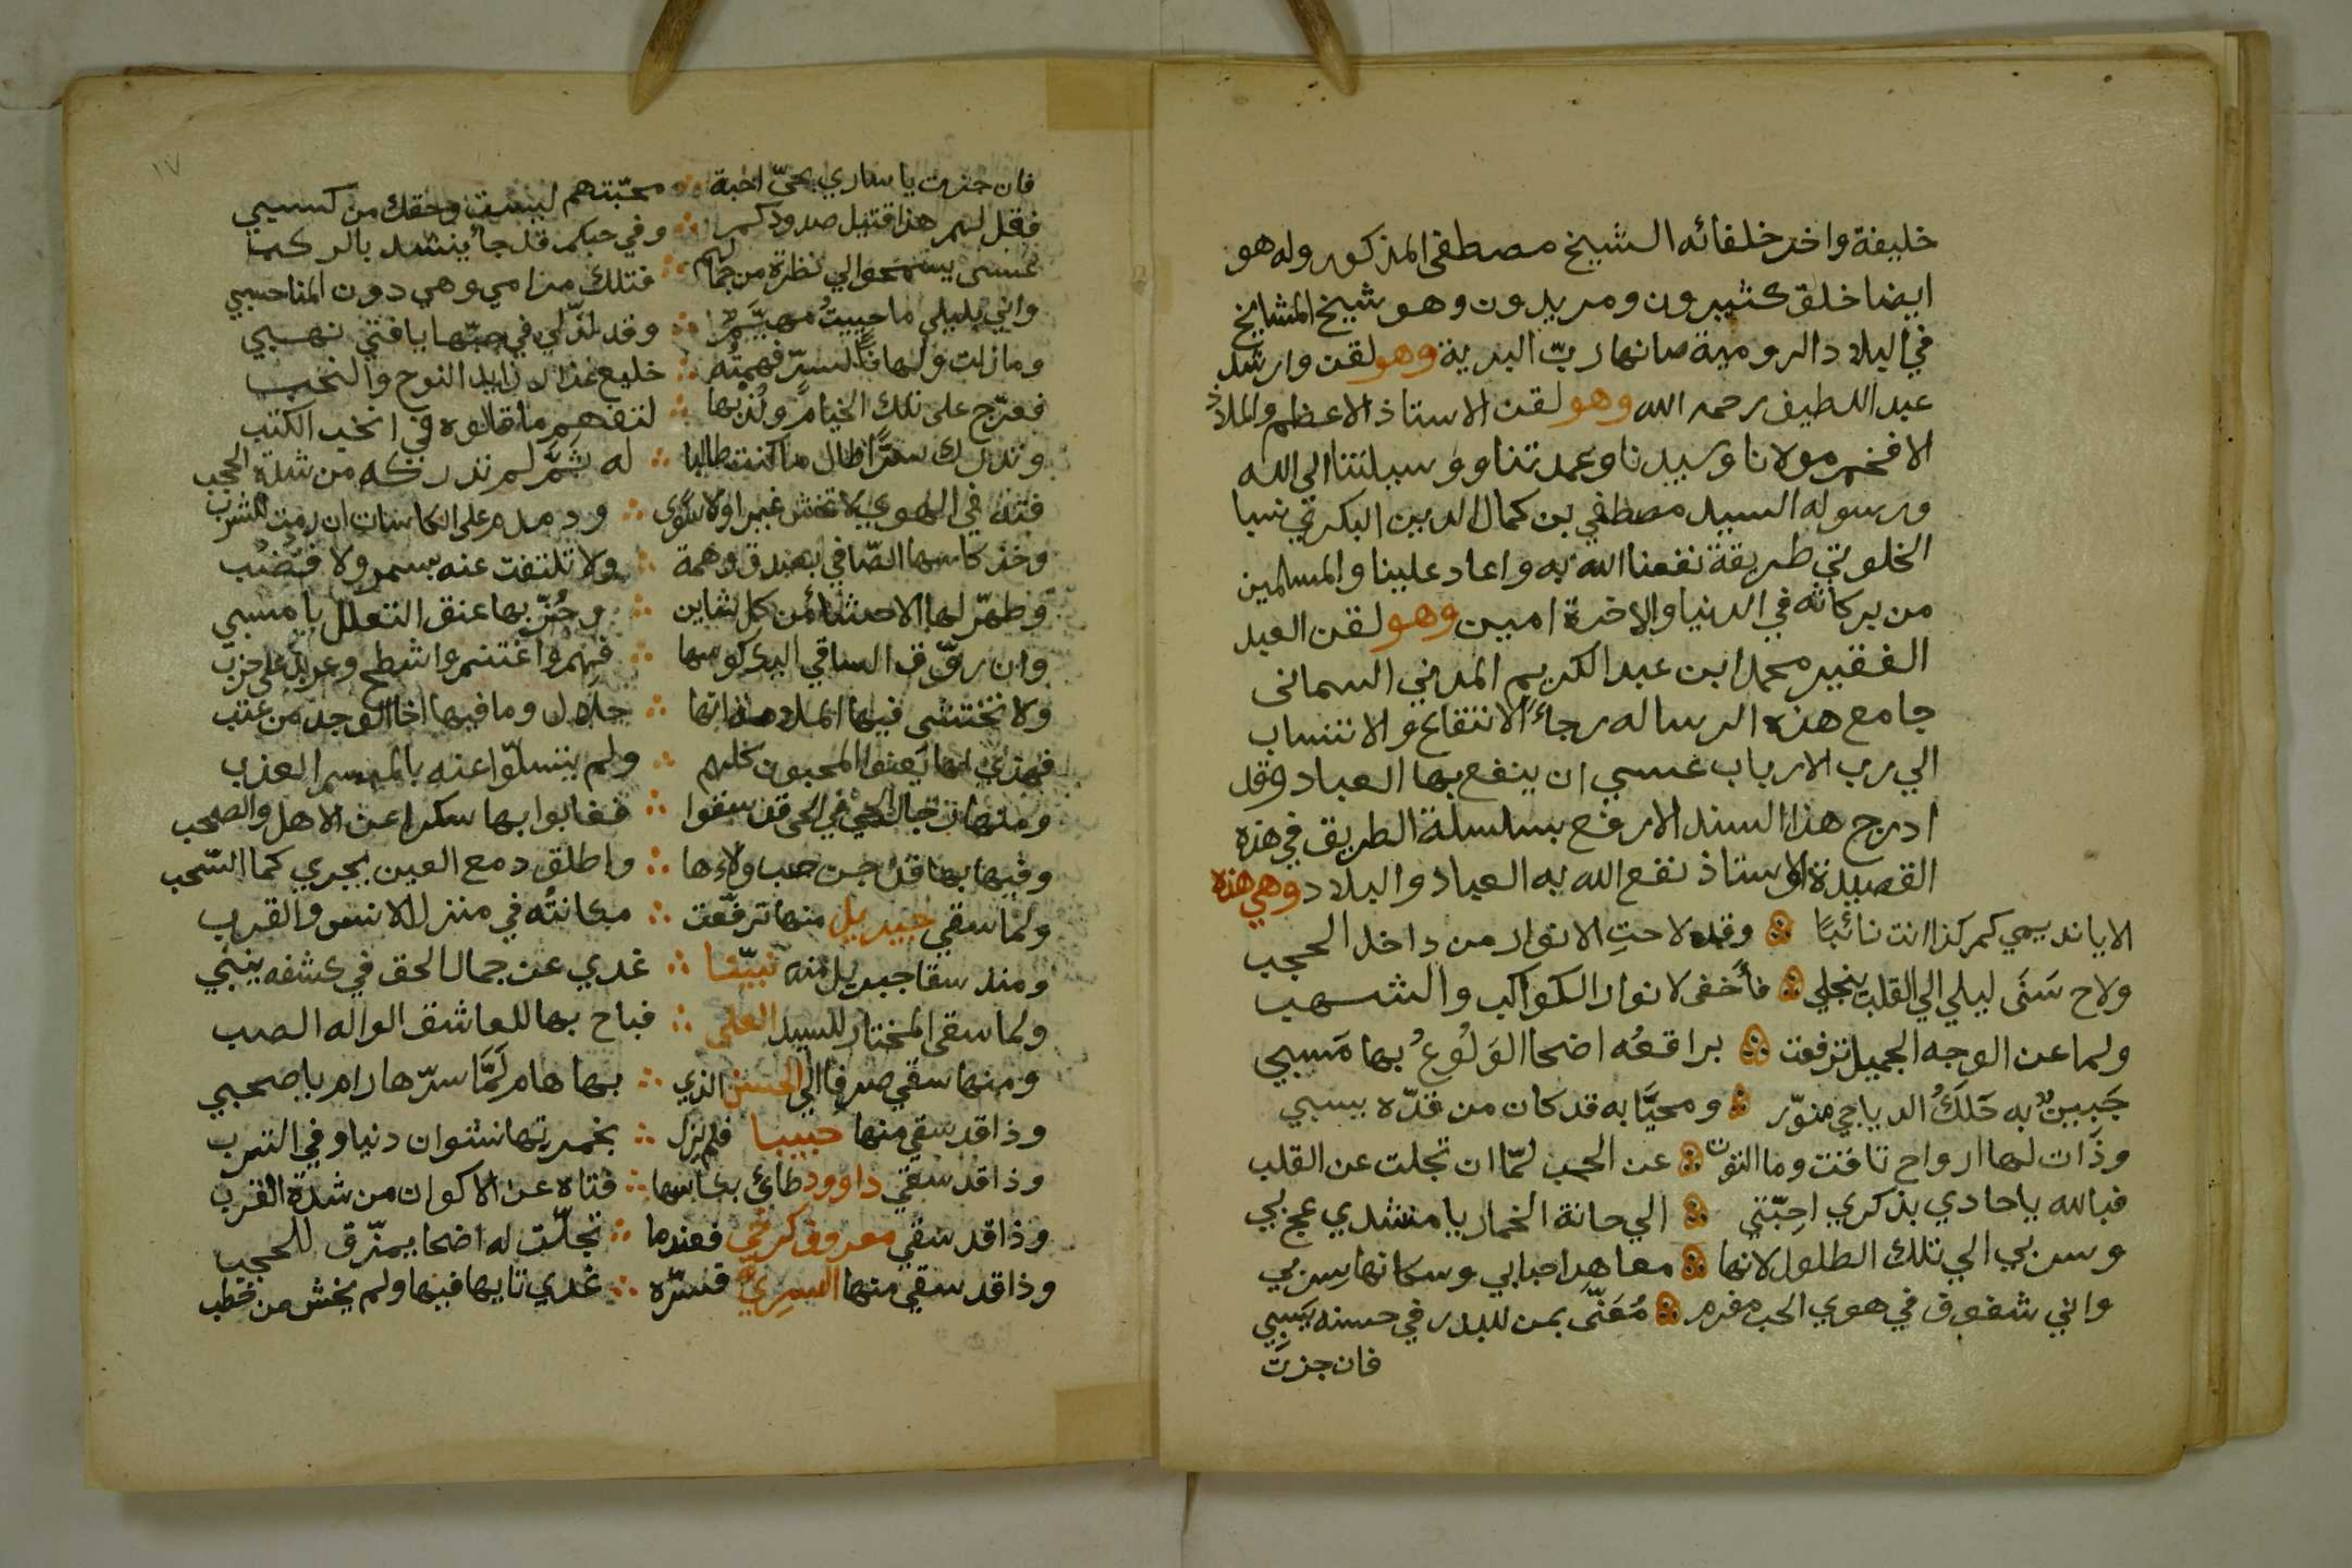 خليفة واخر خلفائه الشيخ مصطفى المذكور وله هو
ايضا خلق كثيرون ومريدون وهو شيخ المشايخ
في البلاد الرومية صانها ربّ البرية وهو لقن وارشد
عبد اللطيف رحمه الله وهو لقن الاستاذ الاعظم والملاذ
الافخم مولانا وسيدنا وعمدتنا ووسيلتنا الى الله
ورسوله السيد مصطفي بن كمال الدين البكري نسبا
الخلوتي طريقة نفعنا الله به واعاد علينا والمسلمين
من بركاته في الدنيا والاخرة امين وهو لقن العبد
الفقير محمد ابن عبد الكريم المدني السمانى
جامع هذه الرساله رجاءً الانتفاع والانتساب
الي رب الارباب عسي ان ينفع بها العباد وقد
ادرج هذا السند الارفع بسلسلة الطريق في هذه
القصيدة الاستاذ نفع الله به العباد والبلاد وهي هذه
الا يانديمي كم كذا انت نائبًا وقد لاحتِ الانوار من داخل الحجب
ولاح سَنَى ليلي الي القلب ينجلي فأخفى لانوار الكواكب والشهب
ولما عن الوجه الجميل ترفعت براقعُه اضحا الوَلُوعُ بها مَسبي
جَبينٌ به حَلَكُ الدياجي منوّر ومحيَّا به قد كان من قدّه يسبي
وذَات لها ارواح تافتت وما التوت عن الحب لمّا ان تجلت عن القلب
فبالله ياحادي بذكري احِبّتي الي حانة الخمار يا منشدي عج بي
وسر بي الي تلك الطلول لانها معاهد احبابي وسكانها سربي
واني شغوف في هوي الحب مغرم مُعَنّى بمن للبدر في حسنه يَسبِي
فان جزتَ
١٧
فان جزت يا ساري بحيّ احبة محبّتهم ليست وحقك من كسبي
فقل لهم هذا قتيل صدودكم وفي حبكم قد جا ينشد بالركب
عسى يسمحوا لي نظرة من جمالهم فتلك مرامي وهي دون المنا حسبي
واني بليلي ما حييتُ مهيَّمٌ وقد لذّ لي في حبّها يا فتى نهبي
ومازلت ولهانًا لسرّ فهمته خليع عذار زايد النوح والنحب
فعرّج على تلك الخيام ولُذ بها لتفهم ما قالوه في انخب الكتب
وتدرك سرًّا طال ما كنت طالبا له ثمَّ لم تدركه من شدة الحجب
فته في الهوي لا تخش غيرا ولا سوى ودمدم على الكاسات ان رمت للشرب
وخذ كاسها الصّافي بصدق وهمة ولا تلتفت عنه بسمر ولا قضب
وطهّر لها الاحشا من كل شاين وجُزّ بها عنق التعلل يا مسبي
وان روّق الساقي اليك كوسها فهم واغتنم واشطح وعربد على حزب
ولا تختشى فيها الملام فانها حلال وما فيها اخا الوجد من عتب
فهذي لها يَعنوا المحبون كلهم ولم يتسلّوا عنه بالمبسم العذب
ومنها رجال الحي في الحى قد سقوا فغابوا بها سكرا عن الاهل والصحب
وفيها بها قد جن صب ولاءها واطلق دمع العين يجري كما السّحب
ولما سقي جبريل منها ترفّعت مكانتُه في منزل الانس والقرب
ومذ سقا جبريل منه نبيّنا غدي عن جمال الحق في كشفه ينبي
ولما سقى المختار للسيد العلي فباح بها للعاشق الواله الصب
ومنها سقي صرفا الى الحسن الذي بها هام لَمَّا سرّها رام يا صحبي
وذا قد سقي منها حبيبا فلم يزل بخمرتها نشوان دنيا وفي الترب
وذا قد سقي داوود طائ بكاسها فتاه عن الاكوان من شدة القرب
وذا قد سقي معروف كرخي فعندما تجلّت له اضحا يمزّق للحجب
وذا قد سقي منها السري فسرّه غدي تايها فيها ولم يخش من خطب